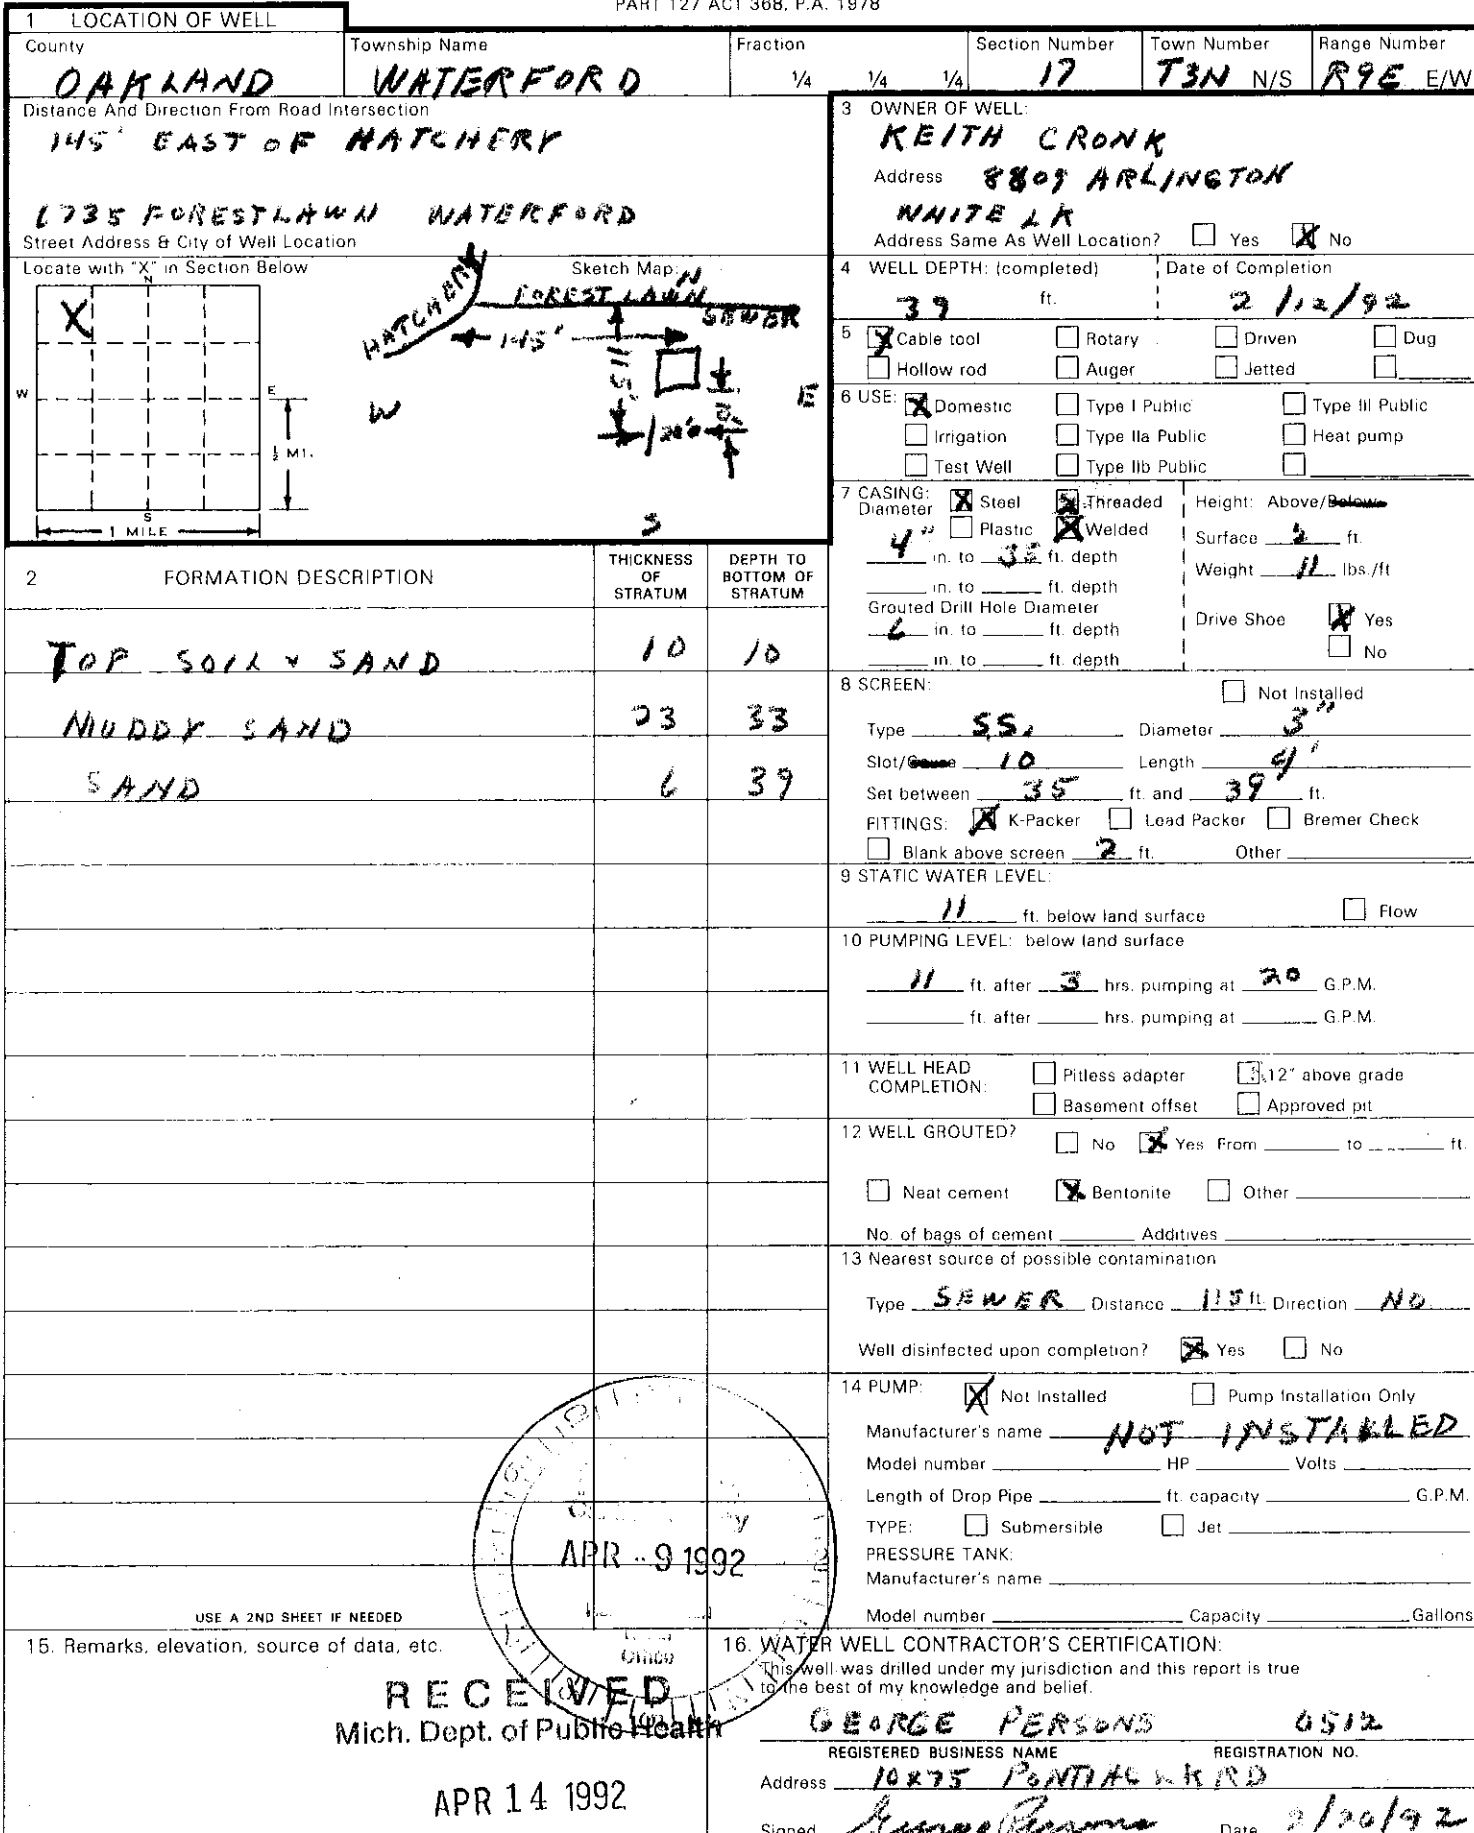 PART 127 ACT 368, P.A. 1978
1 LOCATION OF WELL
County Township Name Fraction Section Number Town Number Range Number
OAKLAND WATERFORD 1/4 1/4 1/4 17 T3N N/S R9E E/W
Distance And Direction From Road Intersection
145' EAST OF HATCHERY
1735 FORESTLAWN WATERFORD
Street Address & City of Well Location
Locate with "X" in Section Below
N
X
W
E
½ MI.
S
1 MILE
Sketch Map:
N
HATCHERY
FOREST LAWN
SEWER
145'
115'
W
E
S
3 OWNER OF WELL:
KEITH CRONK
Address 8809 ARLINGTON
WHITE LK
Address Same As Well Location? Yes X No
4 WELL DEPTH: (completed) Date of Completion
39 ft. 2/12/92
5 X Cable tool Rotary Driven Dug
Hollow rod Auger Jetted
6 USE: X Domestic Type I Public Type III Public
Irrigation Type IIa Public Heat pump
Test Well Type IIb Public
7 CASING: X Steel X Threaded Height: Above/Below
Diameter Plastic X Welded Surface 2 ft.
4" in. to 35 ft. depth
Weight 11 lbs./ft
in. to ft. depth
Grouted Drill Hole Diameter
6 in. to ft. depth Drive Shoe X Yes
in. to ft. depth No
2 FORMATION DESCRIPTION THICKNESS OF STRATUM DEPTH TO BOTTOM OF STRATUM
TOP SOIL & SAND 10 10
MUDDY SAND 23 33
SAND 6 39
8 SCREEN: Not Installed
Type S.S. Diameter 3"
Slot/Gauze 10 Length 4'
Set between 35 ft. and 39 ft.
FITTINGS: X K-Packer Lead Packer Bremer Check
Blank above screen 2 ft. Other
9 STATIC WATER LEVEL:
11 ft. below land surface Flow
10 PUMPING LEVEL: below land surface
11 ft. after 3 hrs. pumping at 20 G.P.M.
ft. after hrs. pumping at G.P.M.
11 WELL HEAD COMPLETION: Pitless adapter 12" above grade
Basement offset Approved pit
12 WELL GROUTED? No X Yes From to ft.
Neat cement X Bentonite Other
No. of bags of cement Additives
13 Nearest source of possible contamination
Type SEWER Distance 115 ft. Direction NO.
Well disinfected upon completion? X Yes No
14 PUMP: X Not Installed Pump Installation Only
Manufacturer's name NOT INSTALLED
Model number HP Volts
Length of Drop Pipe ft. capacity G.P.M.
TYPE: Submersible Jet
PRESSURE TANK:
Manufacturer's name
Model number Capacity Gallons
APR - 9 1992
Office
USE A 2ND SHEET IF NEEDED
15. Remarks, elevation, source of data, etc.
RECEIVED
Mich. Dept. of Public Health
APR 14 1992
16. WATER WELL CONTRACTOR'S CERTIFICATION:
This well was drilled under my jurisdiction and this report is true
to the best of my knowledge and belief.
GEORGE PERSONS 0512
REGISTERED BUSINESS NAME REGISTRATION NO.
Address 10875 PONTIAC LK RD
Signed George Persons Date 2/20/92